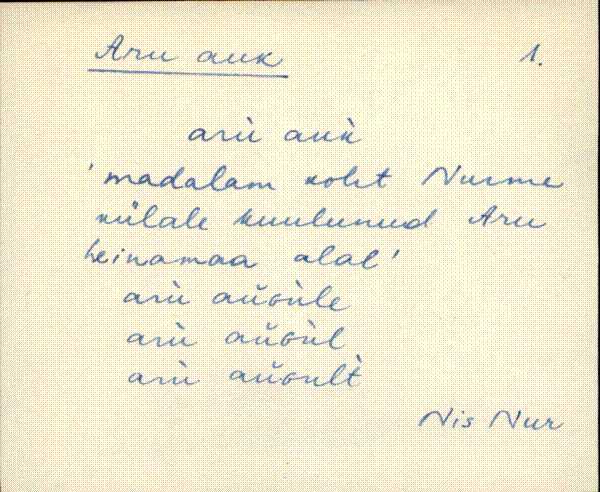 Aru auk 1.
arù auk̀
'madalam koht Nurme
külale kuulunud Aru
heinamaa alal'
arù aŭɢùle
arù aŭɢùl
arù aŭɢult̀
Nis Nur